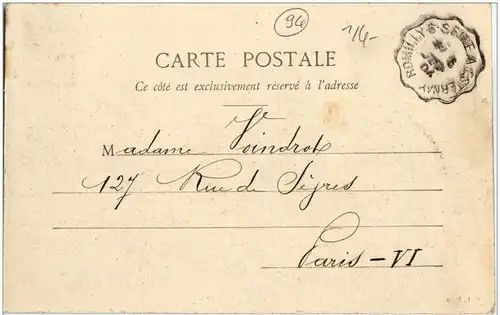 94
1/4-
ROMILLY-S-SEINE A ESTERNAY
CARTE POSTALE
Ce côté est exclusivement réservé à l'adresse
Madame Voindrot
127 Rue de Sèvres
Paris - VI